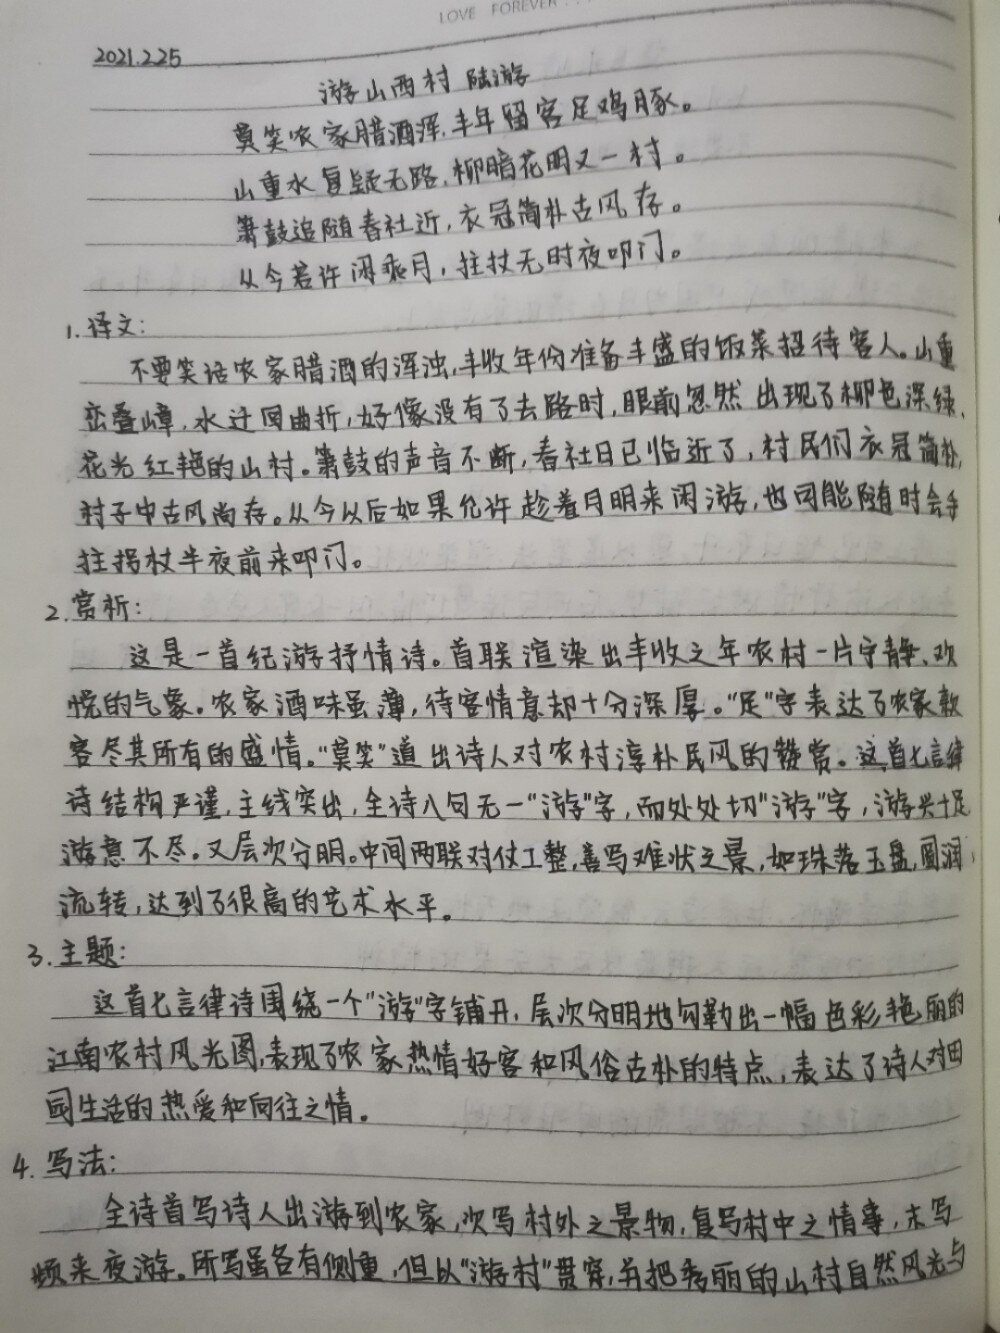 LOVE FOREVER...
2021.2.25
游山西村 陆游
莫笑农家腊酒浑,丰年留客足鸡豚。
山重水复疑无路,柳暗花明又一村。
箫鼓追随春社近,衣冠简朴古风存。
从今若许闲乘月,拄杖无时夜叩门。
1.译文:
不要笑话农家腊酒的浑浊,丰收年份准备丰盛的饭菜招待客人。山重
峦叠嶂,水迂回曲折,好像没有了去路时,眼前忽然出现了柳色深绿、
花光红艳的山村。箫鼓的声音不断,春社日已临近了,村民们衣冠简朴,
村子中古风尚存。从今以后如果允许趁着月明来闲游,也可能随时会手
拄拐杖半夜前来叩门。
2.赏析:
这是一首纪游抒情诗。首联渲染出丰收之年农村一片宁静、欢
悦的气象。农家酒味虽薄,待客情意却十分深厚。“足”字表达了农家款
客尽其所有的盛情。“莫笑”道出诗人对农村淳朴民风的赞赏。这首七言律
诗结构严谨,主线突出,全诗八句无一“游”字,而处处切“游”字,游兴十足
游意不尽。又层次分明。中间两联对仗工整,善写难状之景,如珠落玉盘,圆润
流转,达到了很高的艺术水平。
3.主题:
这首七言律诗围绕一个“游”字铺开,层次分明地勾勒出一幅色彩艳丽的
江南农村风光图,表现了农家热情好客和风俗古朴的特点,表达了诗人对田
园生活的热爱和向往之情。
4.写法:
全诗首写诗人出游到农家,次写村外之景物,复写村中之情事,末写
频来夜游。所写虽各有侧重,但以“游村”贯穿,并把秀丽的山村自然风光与